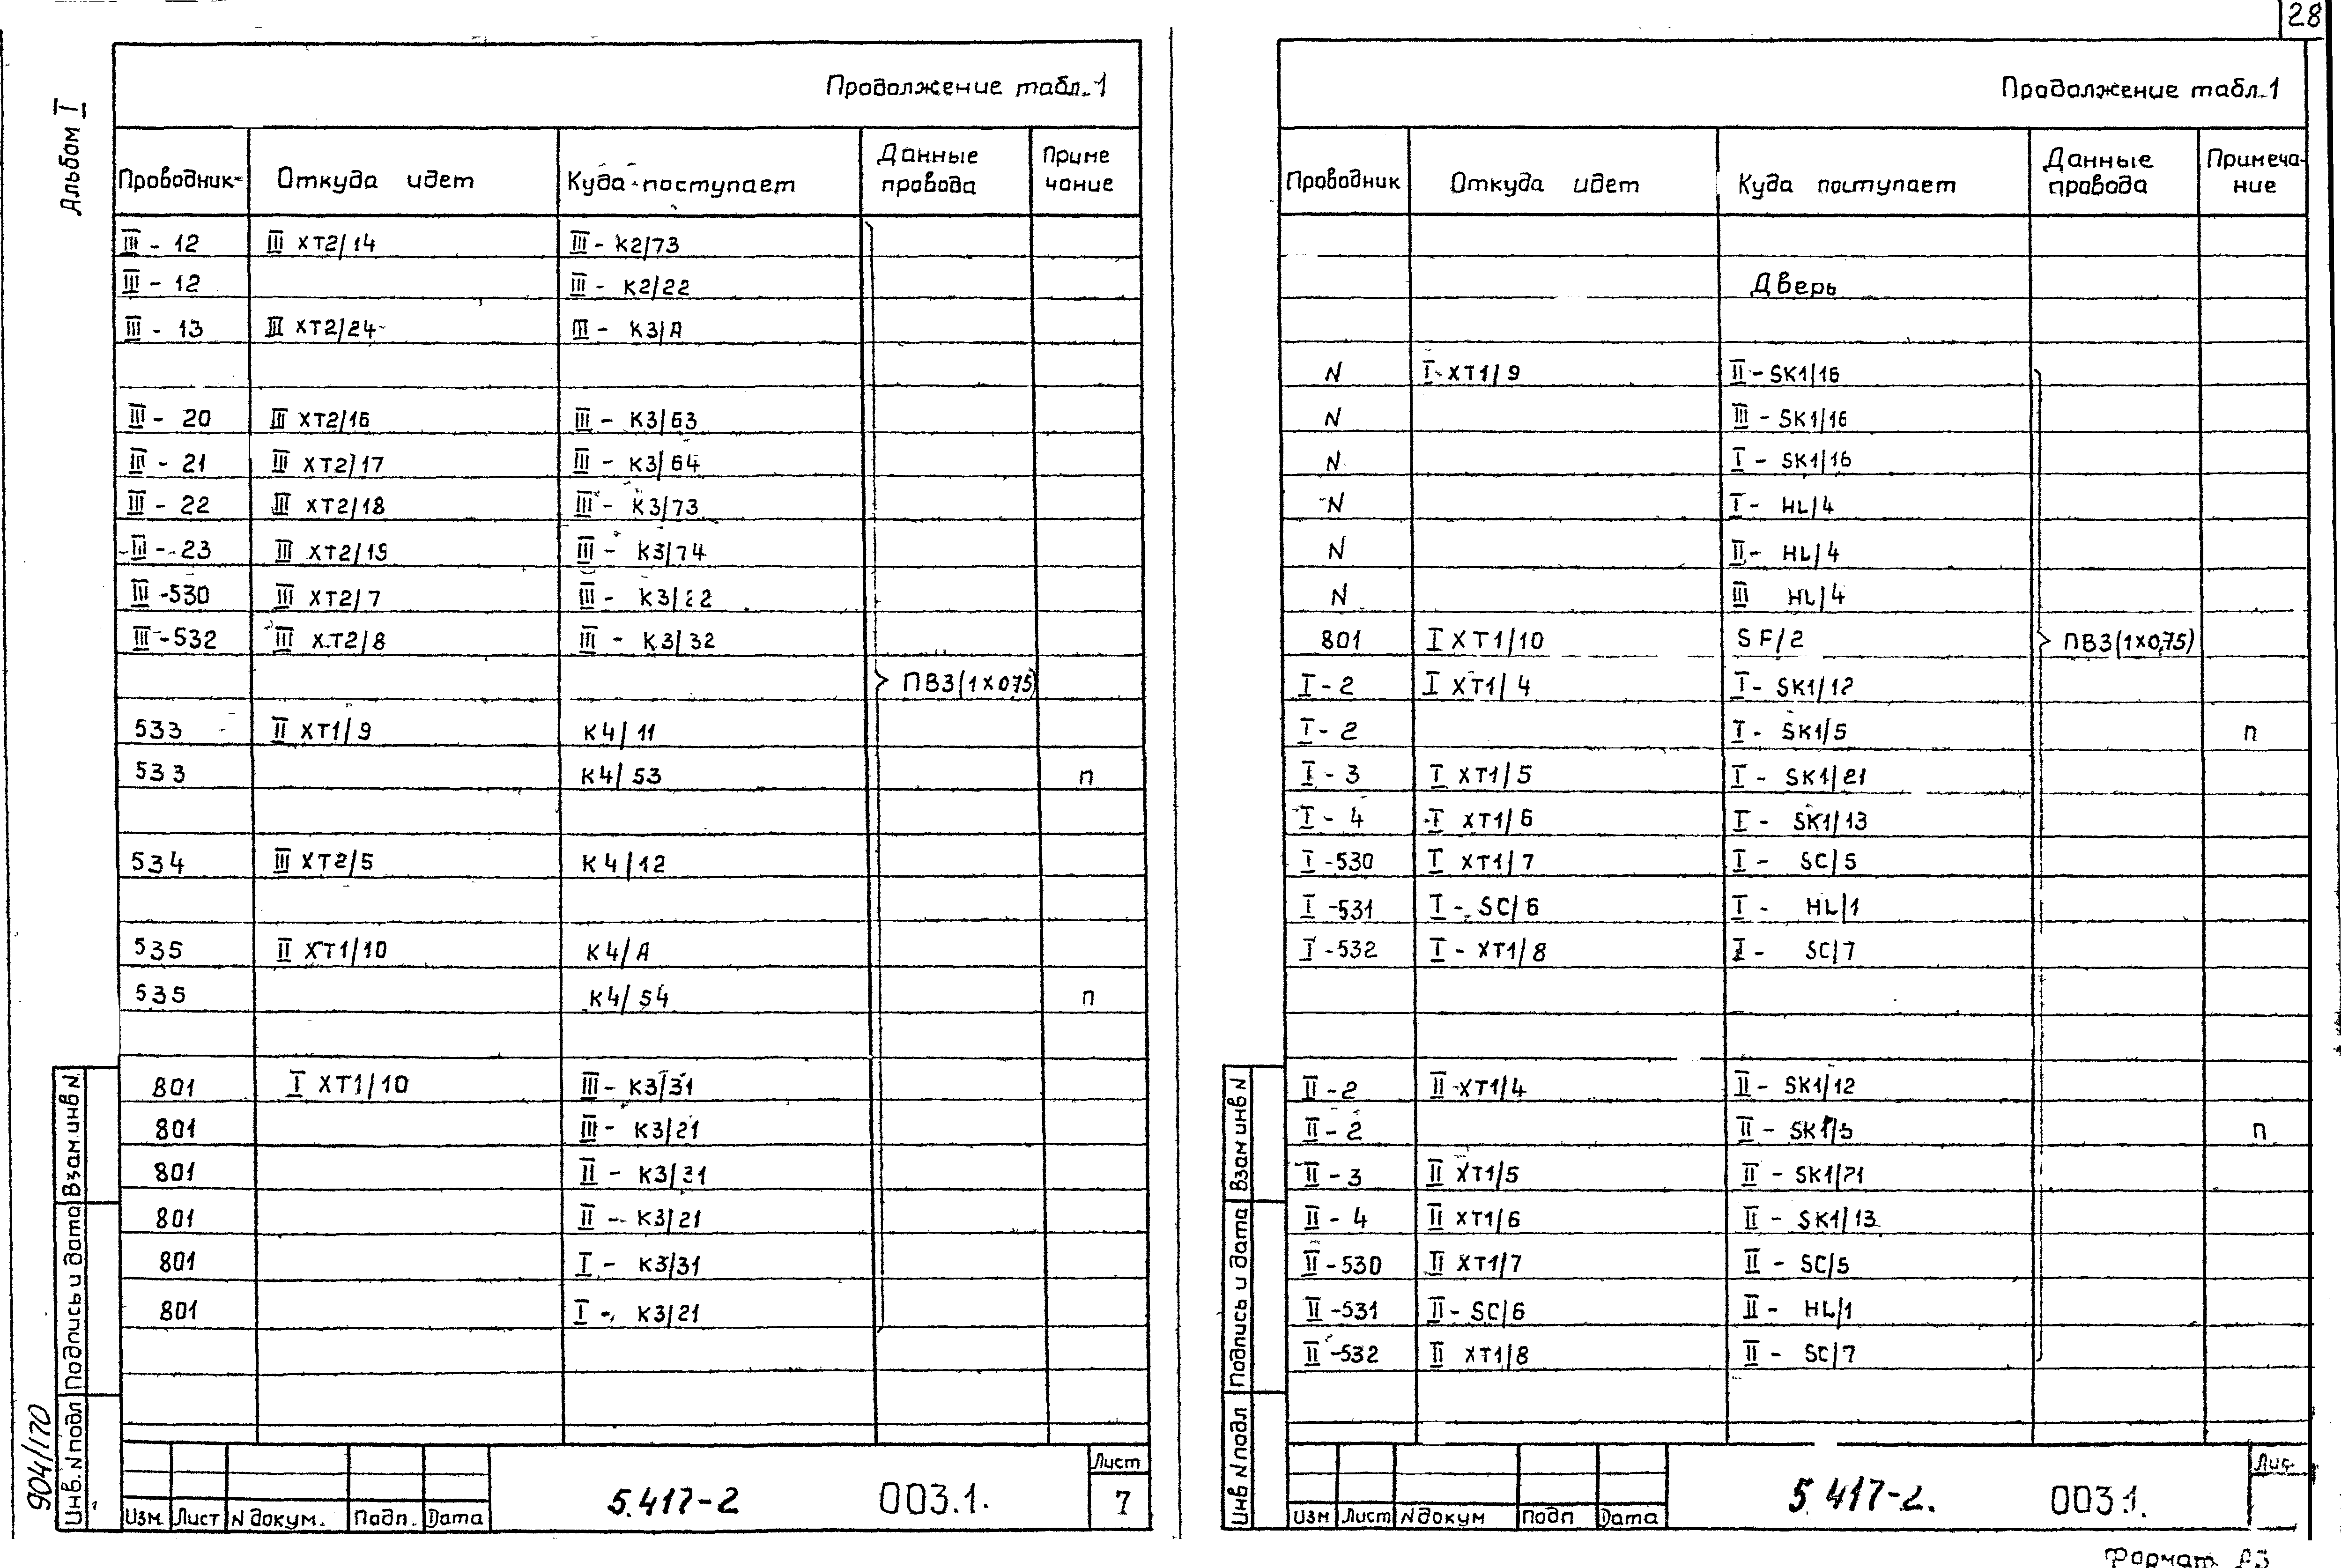 28
Альбом I
Продолжение табл. 1
Проводник Откуда идет Куда поступает Данные провода Примечание
III - 12 III XT2/14 III - K2/73
III - 12 III - K2/22
III - 13 III XT2/24 III - K3/A
III - 20 III XT2/16 III - K3/63
III - 21 III XT2/17 III - K3/64
III - 22 III XT2/18 III - K3/73
III - 23 III XT2/19 III - K3/74
III -530 III XT2/7 III - K3/22
III -532 III XT2/8 III - K3/32
ПВ3(1х0,75)
533 II XT1/9 K4/11
533 K4/53 п
534 III XT2/5 K4/12
535 II XT1/10 K4/A
535 K4/54 п
801 I XT1/10 III - K3/31
801 III - K3/21
801 II - K3/31
801 II - K3/21
801 I - K3/31
801 I - K3/21
Инв. N подл Подпись и дата Взам. инв N
904/170
Изм. Лист N докум. Подп. Дата
5.417-2 003.1.
Лист
7
Продолжение табл. 1
Проводник Откуда идет Куда поступает Данные провода Примечание
Дверь
N I-XT1/9 II - SK1/16
N III - SK1/16
N I - SK1/16
N I - HL/4
N II - HL/4
N III HL/4
801 I XT1/10 SF/2 ПВ3(1х0,75)
I - 2 I XT1/4 I - SK1/12
I - 2 I - SK1/5 п
I - 3 I XT1/5 I - SK1/21
I - 4 I XT1/6 I - SK1/13
I -530 I XT1/7 I - SC/5
I -531 I - SC/6 I - HL/1
I -532 I - XT1/8 I - SC/7
II - 2 II XT1/4 II - SK1/12
II - 2 II - SK1/5 п
II - 3 II XT1/5 II - SK1/21
II - 4 II XT1/6 II - SK1/13
II - 530 II XT1/7 II - SC/5
II -531 II - SC/6 II - HL/1
II -532 II XT1/8 II - SC/7
Инв N подл Подпись и дата Взам инв N
Изм Лист N докум Подп Дата
5 417-2. 003.1.
Лис
Формат А3